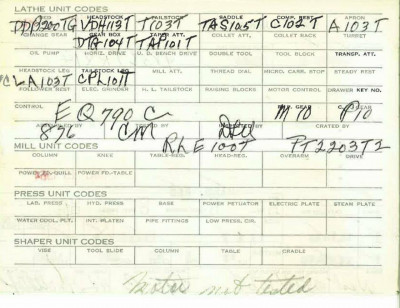 LATHE UNIT CODES
BED HEADSTOCK TAILSTOCK SADDLE COMP. REST APRON
DDB200TG VDH113T T103T TAS105T C102T A103T
CHANGE GEAR GEAR BOX TAILSTOCK COLLET ATT. COLLET RACK TURRET
DTG104T TAP101T
OIL PUMP HORIZ. DRIVE U. D. BENCH DRIVE DOUBLE TOOL TOOL BLOCK TRANSP. ATT.
CHIP PAN HEADSTOCK LEG TAILSTOCK LEG MILL ATT. THREAD DIAL MICRO. CARR. STOP STEADY REST
LA103T CPA101T
FOLLOWER REST ELEC. GRINDER H. L. TAILSTOCK RAISING BLOCKS MOTOR CONTROL DRAWER KEY NO.
CONTROL M GEAR
EQ 790 C M 70 P10
INSPECTED BY CRATED BY
876 CM DEW
MILL UNIT CODES RLE100T PT2203T2
COLUMN KNEE TABLE-REG. HEAD-REG. OVERARM DRIVE
POWER FD.-QUILL POWER FD.-TABLE
PRESS UNIT CODES
LAR. PRESS HYD. PRESS BASE POWER PETUATOR ELECTRIC PLATE STEAM PLATE
WATER COOL. PLT. INT. PLATEN PIPE FITTINGS LOW PRESS. CIR.
SHAPER UNIT CODES
VISE TOOL SLIDE COLUMN TABLE CRADLE
Motor not tested